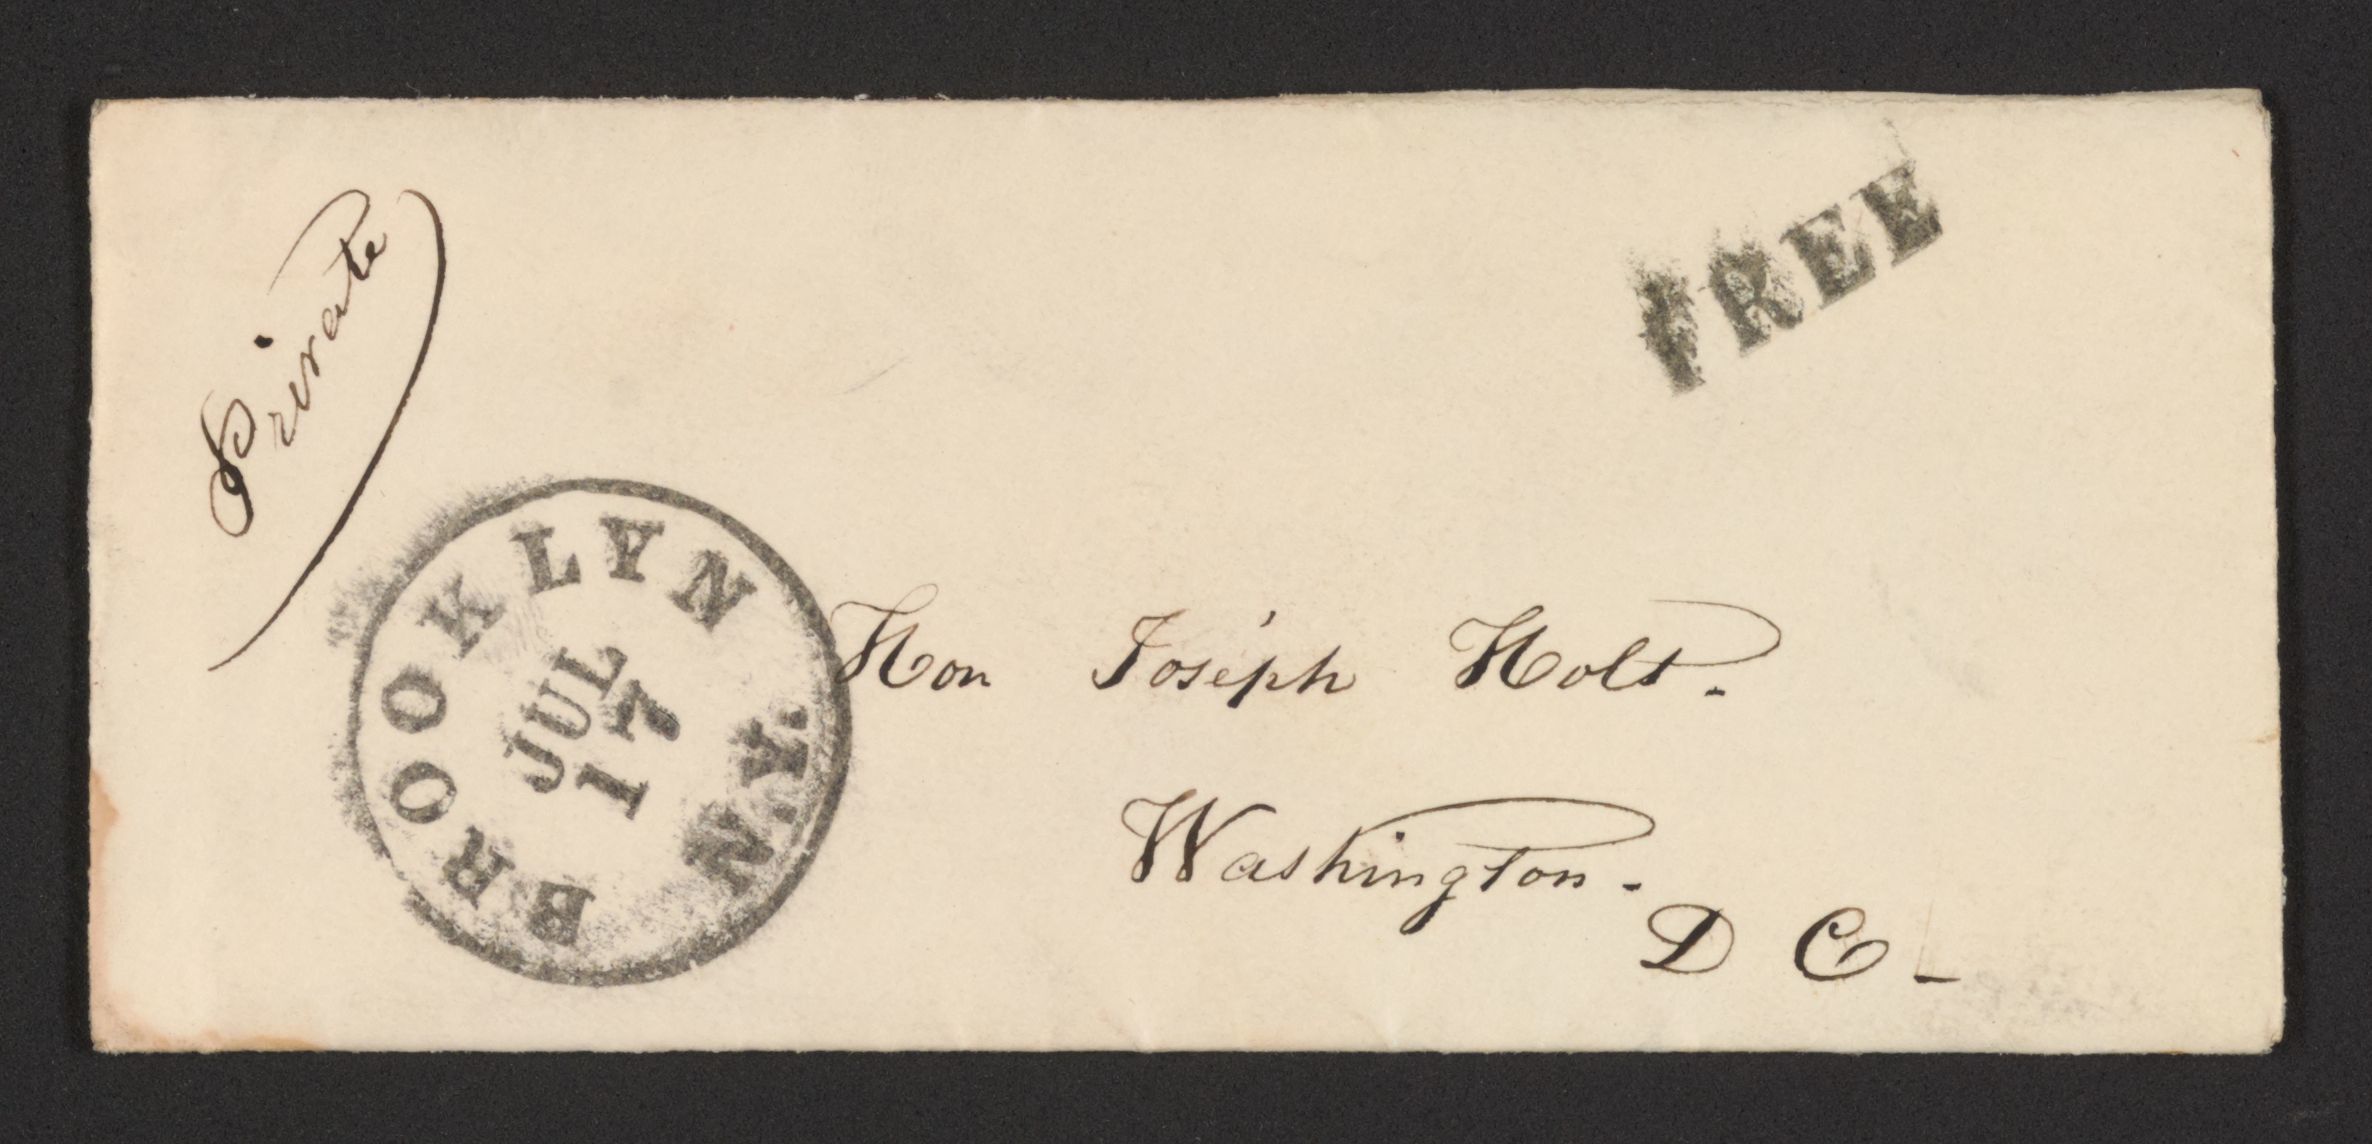 Private
FREE
BROOKLYN N.Y.
JUL
17
Hon Joseph Holt.
Washington.
D C.